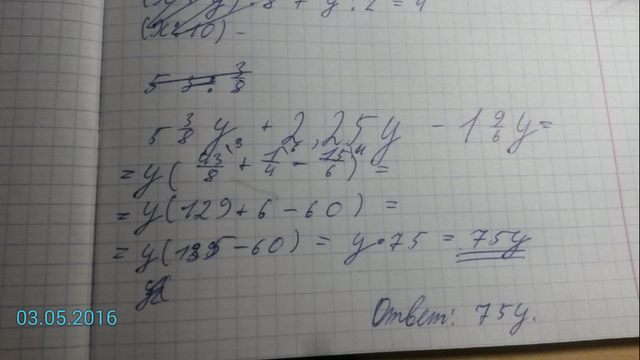 (x·10) -
5 3/8 y + 2,25y - 1 9/6 y =
= y(43/8 + 1/4 - 15/6) =
= y(129 + 6 - 60) =
= y(135 - 60) = y · 75 = 75y
Ответ: 75y.
03.05.2016